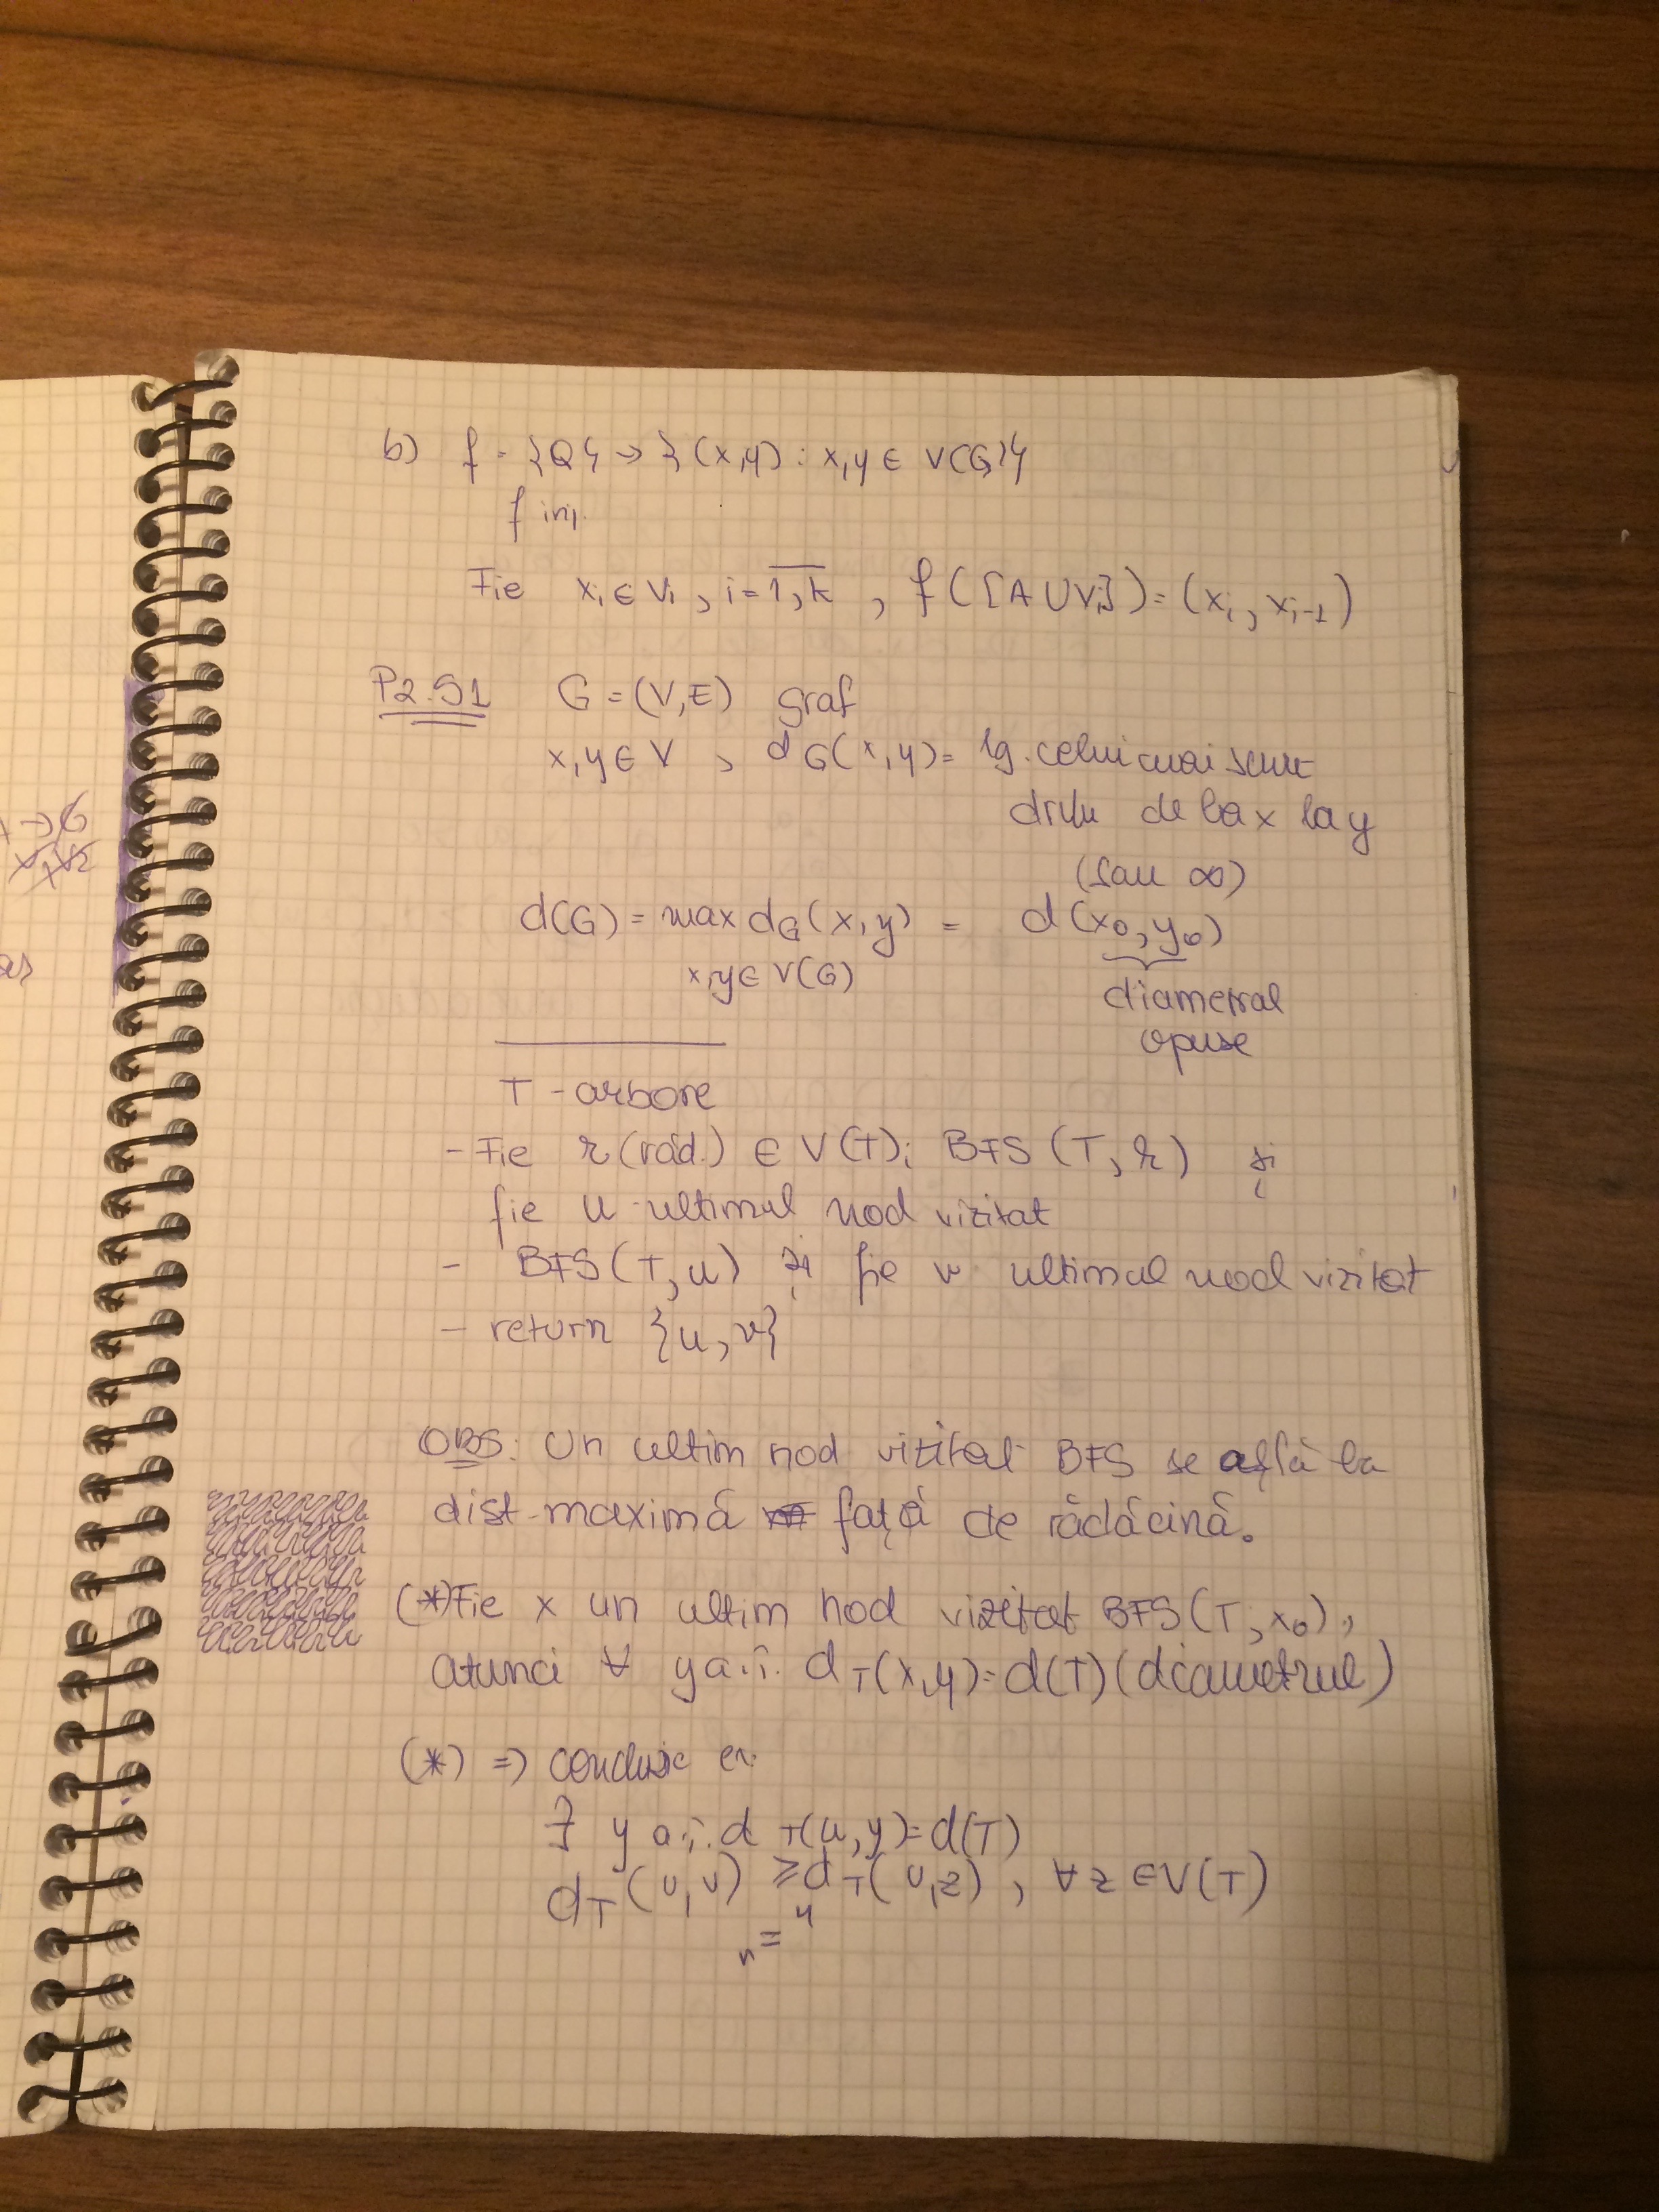 b) f - {Q} → {(x,y) : x,y ∈ V(G)}
f inj.
Fie xᵢ ∈ Vᵢ , i = 1,k , f([A ∪ Vᵢ]) = (xᵢ, xᵢ₋₁)
P2. S1 G = (V,E) graf
x,y ∈ V , d_G(x,y) = lg. celui mai scurt
drum de la x la y
(sau ∞)
d(G) = max d_G(x,y) = d(x₀,y₀)
x,y ∈ V(G)
diametral
opuse
T - arbore
- Fie r (răd.) ∈ V(T); BFS(T, r) și
fie u ultimul nod vizitat
- BFS(T,u) și fie v ultimul nod vizitat
- return {u,v}
OBS: Un ultim nod vizitat BFS se află la
dist. maximă față de rădăcină.
(*) Fie x un ultim nod vizitat BFS(T, x₀),
atunci ∀ y a.î. d_T(x,y) = d(T) (diametrul)
(*) => concluzie ex.
∃ y a.î. d_T(u,y) = d(T)
d_T(u,v) ≥ d_T(u,z) , ∀ z ∈ V(T)
=
→ G